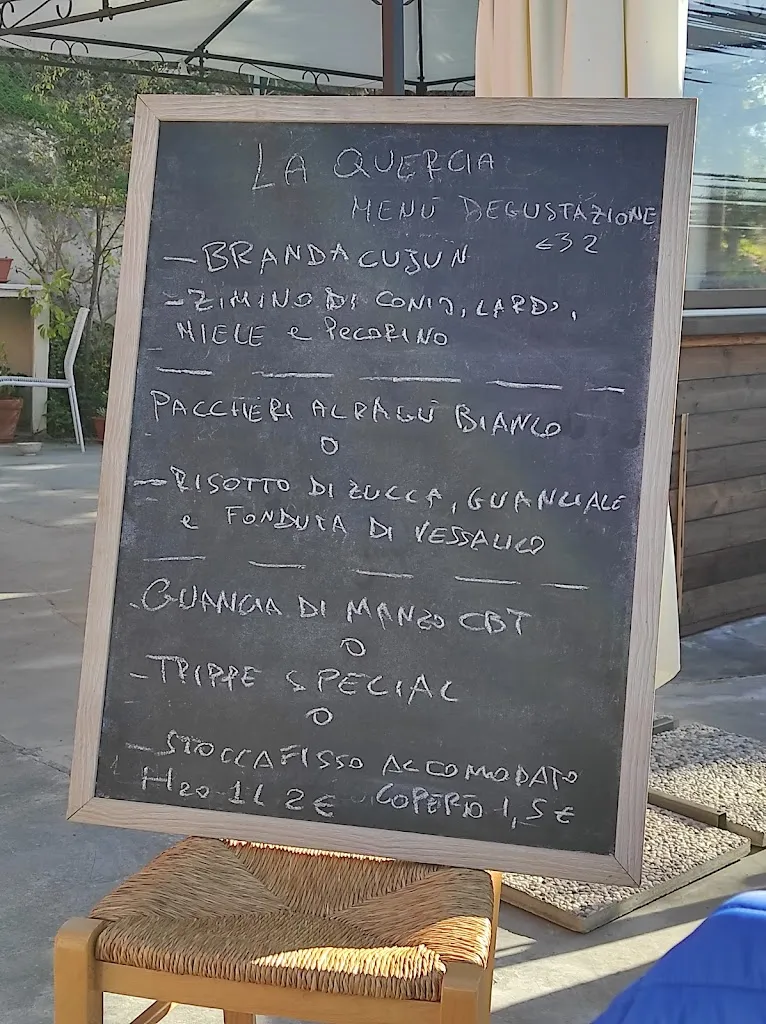 LA QUERCIA
MENÙ DEGUSTAZIONE
€32
- BRANDACUJUN
- ZIMINO DI CONIO, LARDO,
MIELE e PECORINO
PACCHERI AL RAGÙ BIANCO
O
- RISOTTO DI ZUCCA, GUANCIALE
e FONDUTA DI VESSALICO
- GUANCIA DI MANZO CBT
O
- TRIPPE SPECIAL
O
- STOCCAFISSO ACCOMODATO
H2O 1L 2€ COPERTO 1,5€